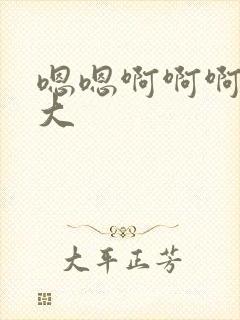 嗯嗯啊啊啊
大
大平正芳